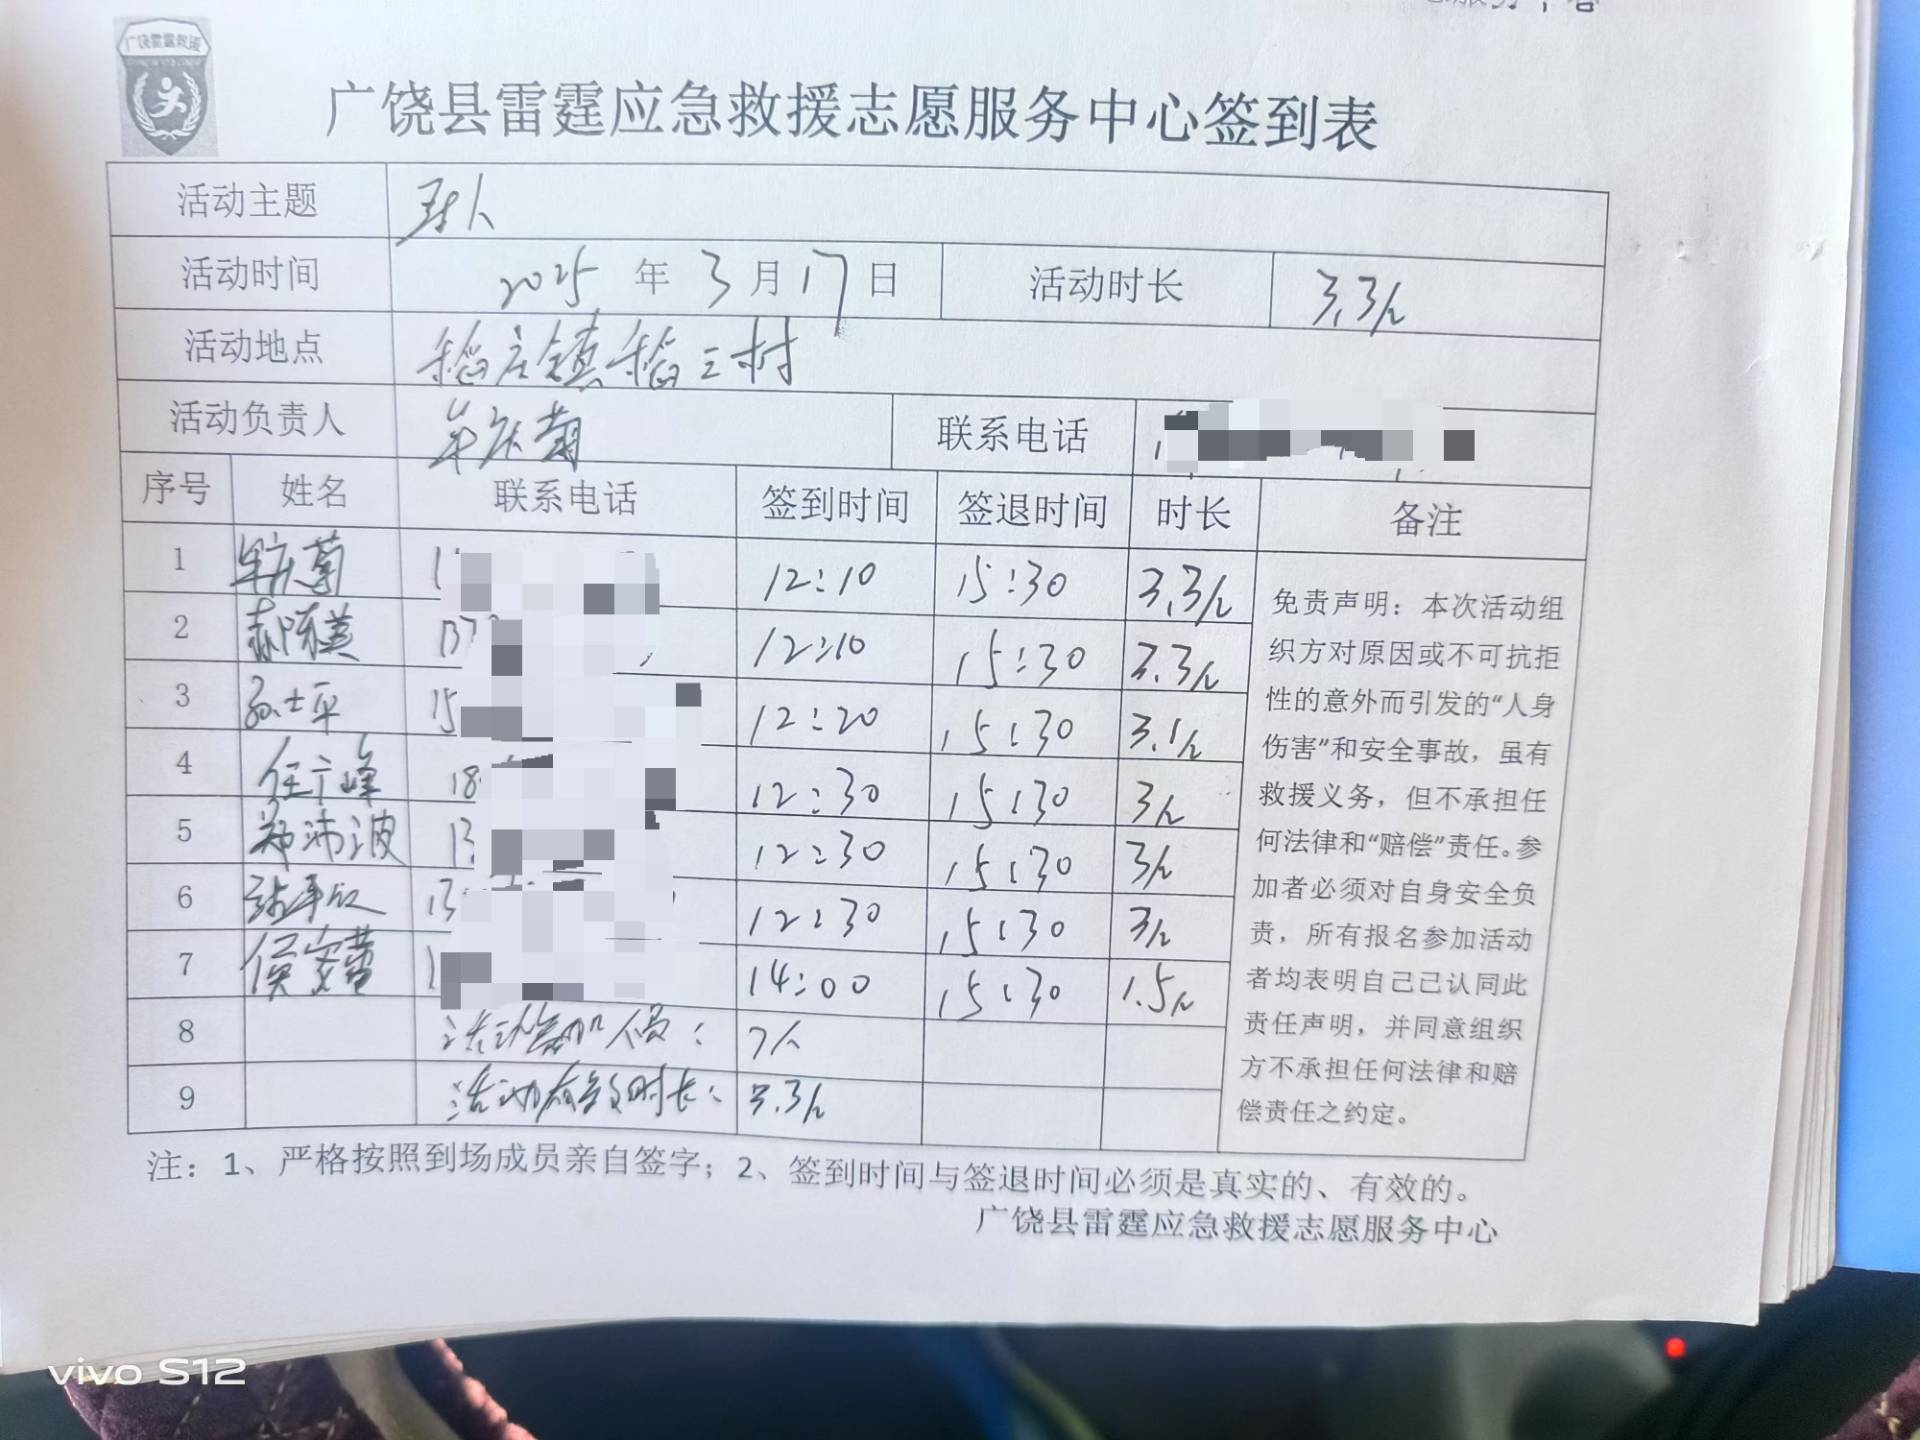 广饶雷霆救援
广饶县雷霆应急救援志愿服务中心签到表
活动主题 寻人
活动时间 2025年3月17日 活动时长 3.3h
活动地点 稻庄镇稻三村
活动负责人 牟庆菊 联系电话
序号 姓名 联系电话 签到时间 签退时间 时长 备注
1 牟庆菊 12:10 15:30 3.3h
2 12:10 15:30 3.3h
3 孙士平 15 12:20 15:30 3.1h
4 任广峰 18 12:30 15:30 3h
5 郑沛波 13 12:30 15:30 3h
6 13 12:30 15:30 3h
7 14:00 15:30 1.5h
8 活动参加人员: 7人
9 活动有效时长: 3.3h
免责声明：本次活动组
织方对原因或不可抗拒
性的意外而引发的“人身
伤害”和安全事故，虽有
救援义务，但不承担任
何法律和“赔偿”责任。参
加者必须对自身安全负
责，所有报名参加活动
者均表明自己已认同此
责任声明，并同意组织
方不承担任何法律和赔
偿责任之约定。
注：1、严格按照到场成员亲自签字；2、签到时间与签退时间必须是真实的、有效的。
广饶县雷霆应急救援志愿服务中心
vivo S12